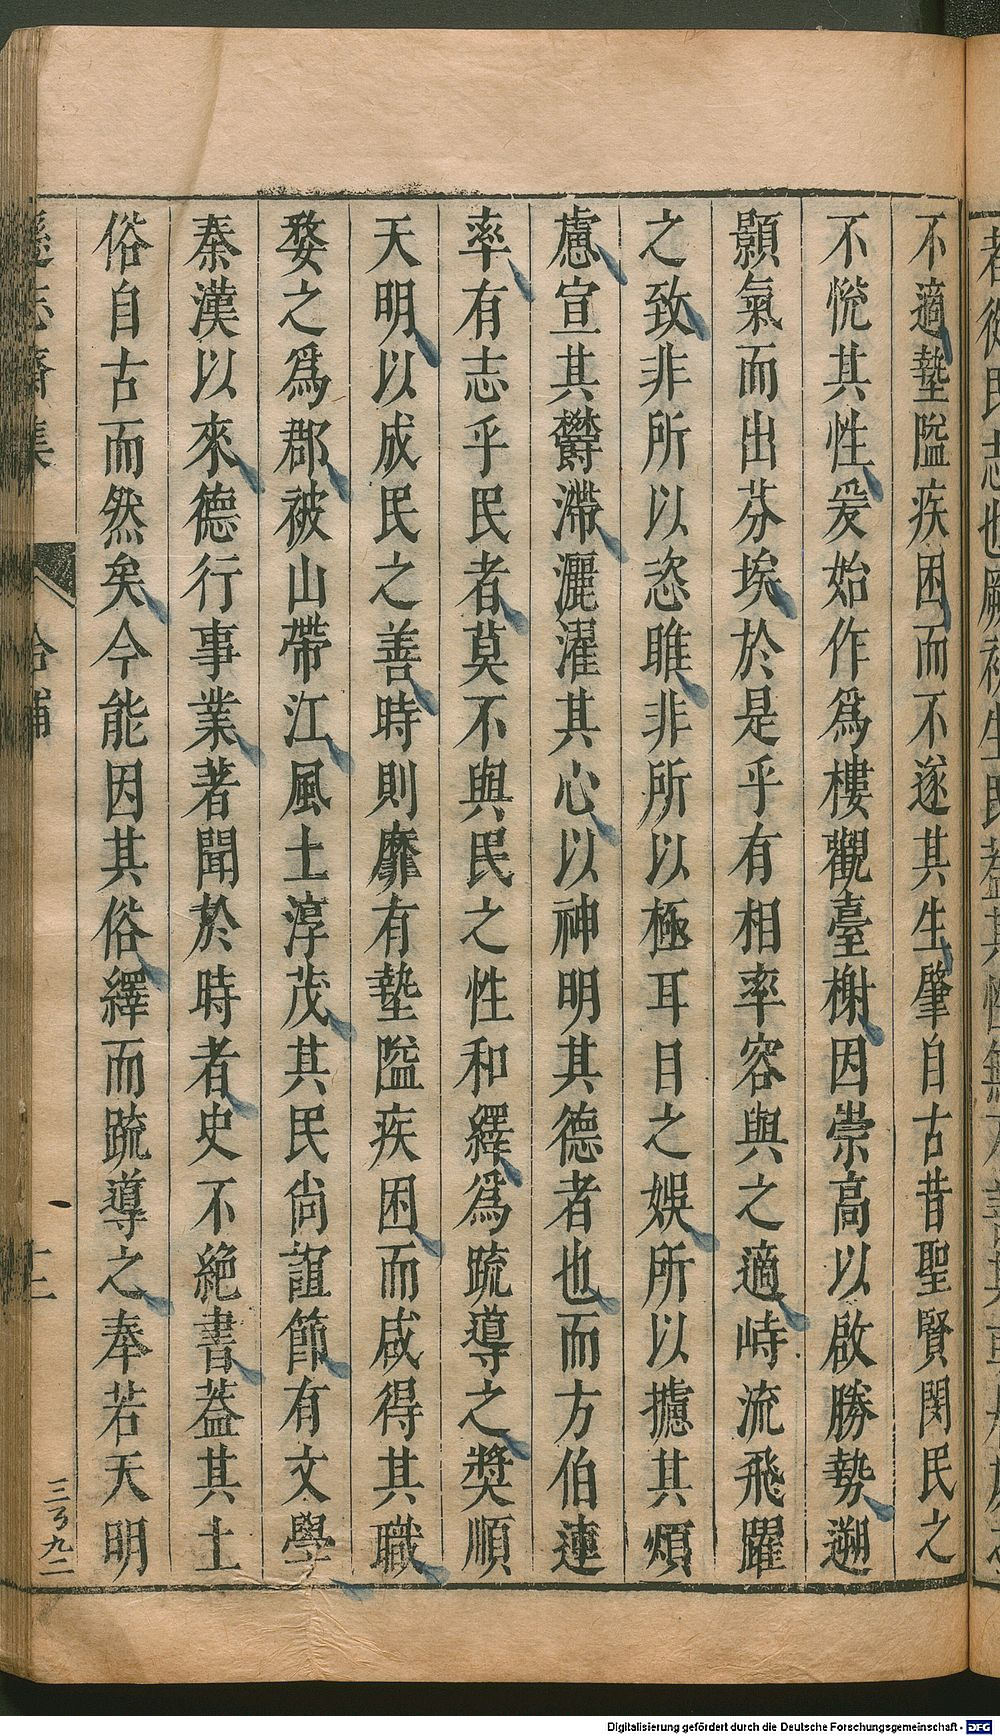 不適墊隘疾困而不遂其生肇自古昔聖賢閔民之
不恱其性爰始作爲樓觀臺榭因崇高以啟勝勢遡
顥氣而出芬埃於是乎有相率容與之適峙流飛躍
之致非所以恣睢非所以極耳目之娛所以攄其煩
慮宣其鬱滯灑濯其心以神明其德者也而方伯連
率有志乎民者莫不與民之性和繹爲疏導之奬順
天明以成民之善時則靡有墊隘疾困而咸得其職
婺之爲郡被山帶江風土淳茂其民尚誼節有文學
秦漢以來德行事業著聞於時者史不絶書葢其土
俗自古而然矣今能因其俗繹而疏導之奉若天明
遜志齋集
拾補
三〇九二
Digitalisierung gefördert durch die Deutsche Forschungsgemeinschaft - DFG